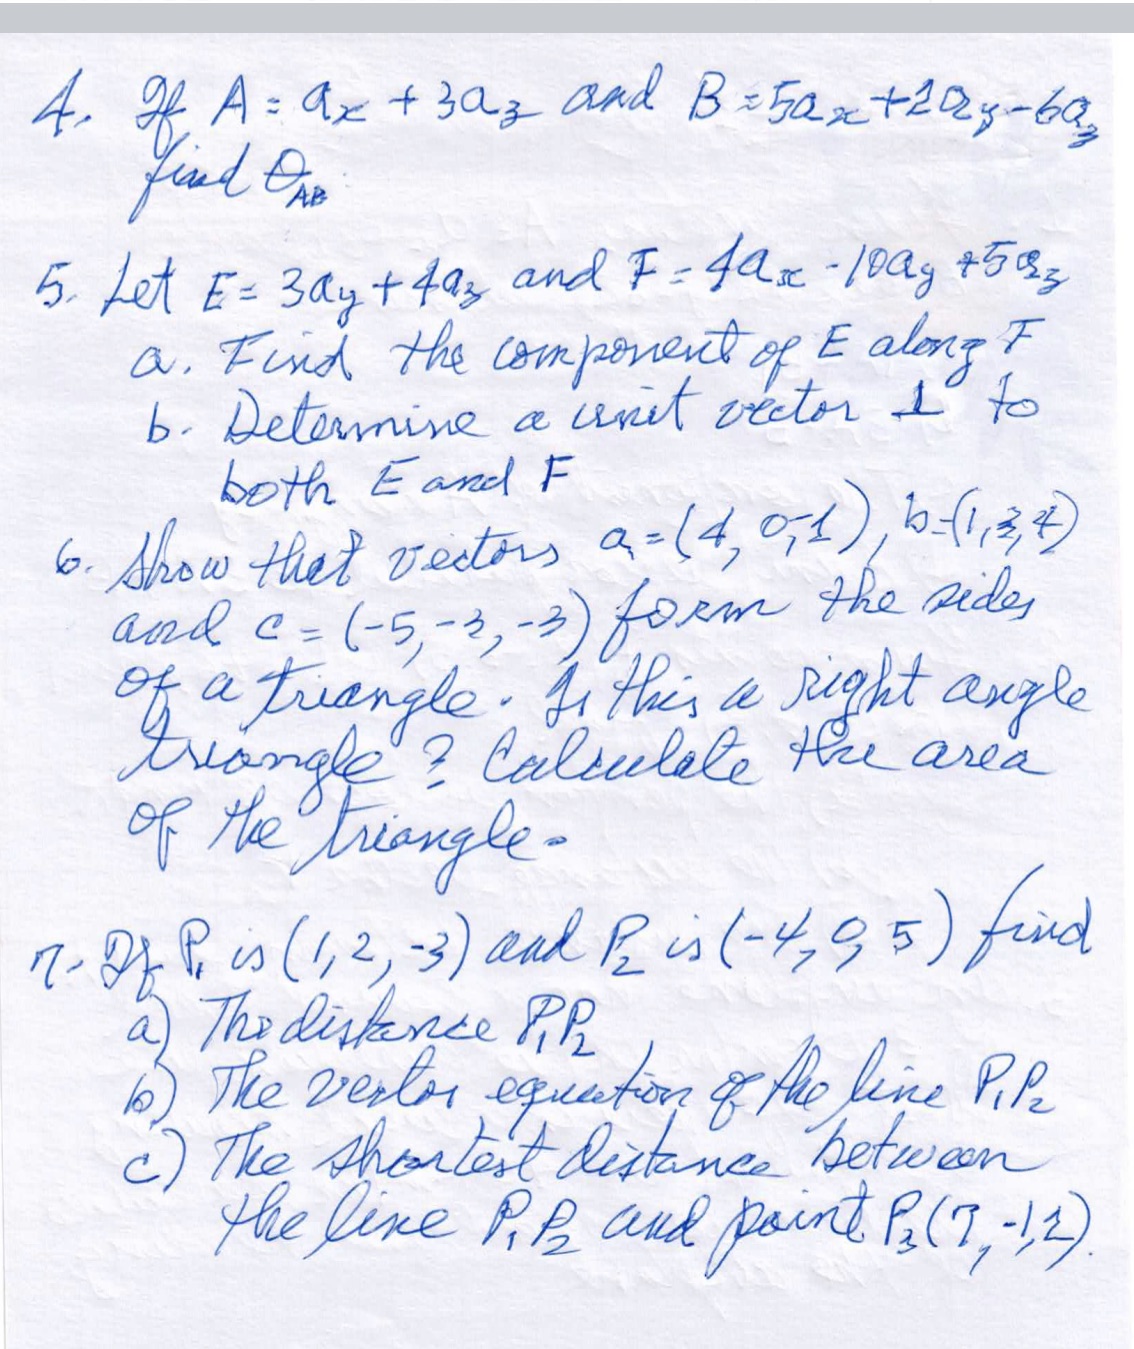 4. If A = ax + 3az and B = 5ax + 2ay - 6az
find θAB
5. Let E = 3ay + 4az and F = 4ax - 10ay + 5az
a. Find the component of E along F
b. Determine a unit vector ⊥ to
both E and F
6. Show that vectors a = (4, 0, -1), b = (1, 3, 4)
and c = (-5, -3, -3) form the sides
of a triangle. Is this a right angle
triangle? Calculate the area
of the triangle.
7. If P1 is (1, 2, -3) and P2 is (-4, 0, 5) find
a) The distance P1P2
b) The vector equation of the line P1P2
c) The shortest distance between
the line P1P2 and point P3 (7, -1, 2).